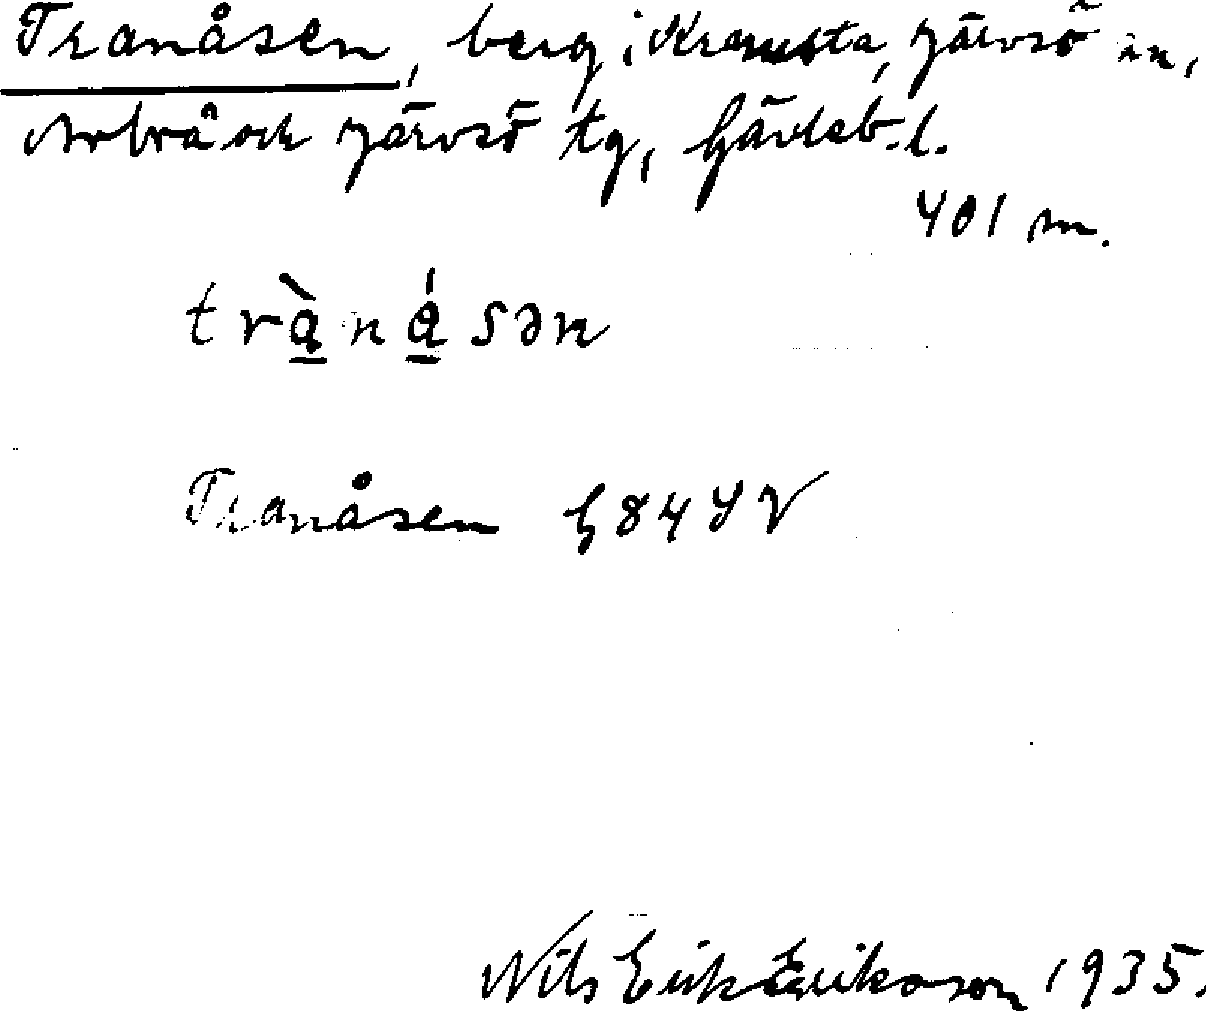 Tranåsen, berg i Kramsta, Järvsö sn,
Arbrå och Järvsö tg, Gävleb. l.
401 m.
trànásən
Tranåsen G 84 SV
Nils Erik Erikson 1935.